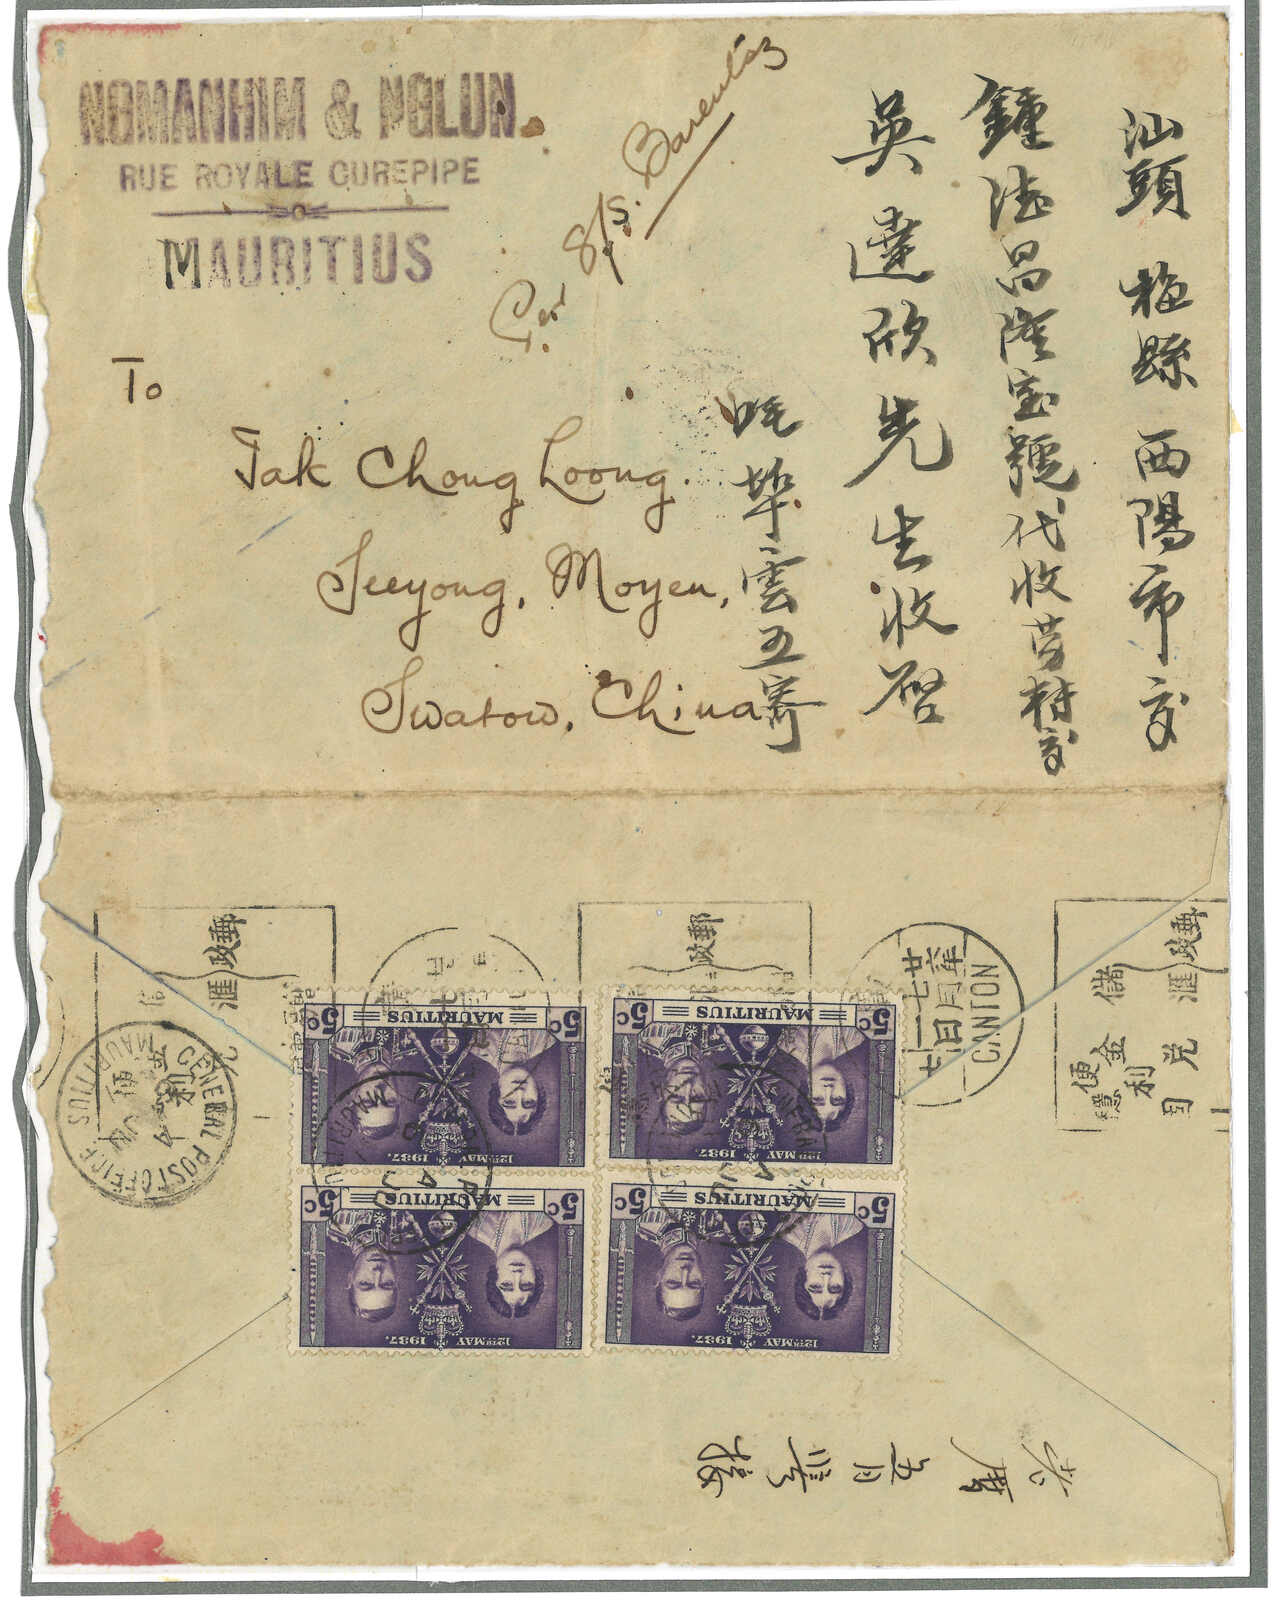 NGMANHIM & NGLUN
RUE ROYALE CUREPIPE
MAURITIUS
Per S/S. Barentsz
To
Tak Chong Loong.
Seeyong, Moyen,
Swatow, China
汕頭梅縣西陽市交
鍾德昌隆宝號代收芳村交
吳達欣先生收啓
埠雲五寄
郵政
匯
郵政
廿六年
七月
日
CANTON
郵政
儲金匯兌
便利
穩固
GENERAL POST OFFICE
4 JUN
MAURITIUS
5c MAURITIUS 5c
12TH MAY 1937.
5c MAURITIUS 5c
12TH MAY 1937.
5c MAURITIUS 5c
12TH MAY 1937.
5c MAURITIUS 5c
12TH MAY 1937.
五月
接